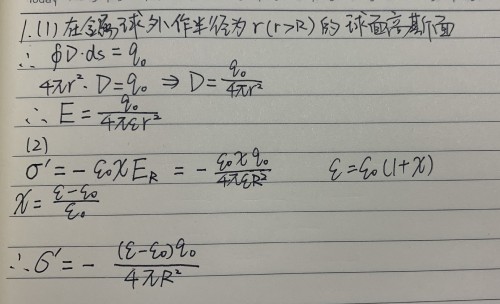 1.(1)在金属球外作半径为r(r>R)的球面高斯面
∴ ∮D·ds=q₀
4πr²·D=q₀ ⇒ D=q₀/4πr²
∴ E=q₀/4πεr²
(2)
σ'=-ε₀χE_R =-ε₀χq₀/4πεR² ε=ε₀(1+χ)
χ=ε-ε₀/ε₀
∴σ'=-(ε-ε₀)q₀/4πR²